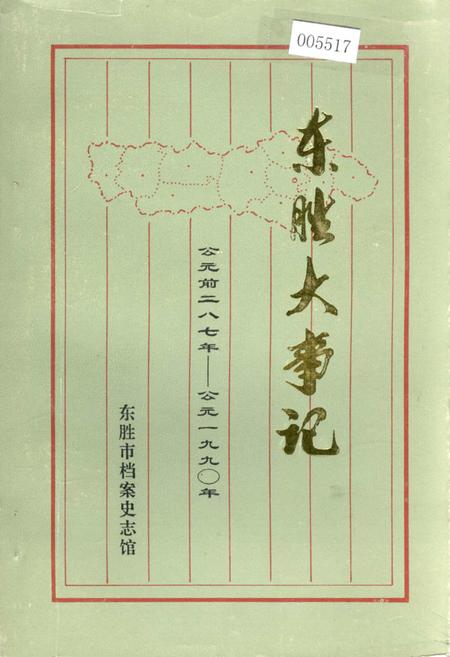 005517
东胜大事记
公元前二八七年——公元一九九〇年
东胜市档案史志馆